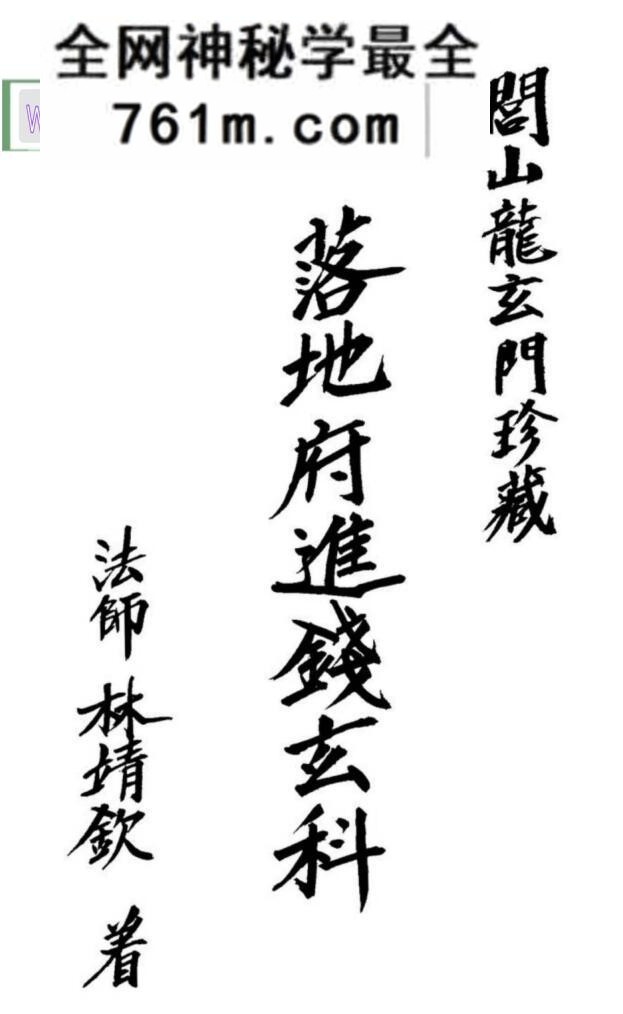 全网神秘学最全
761m.com
閭山龍玄門珍藏
落地府進錢玄科
法師 林靖欽 着